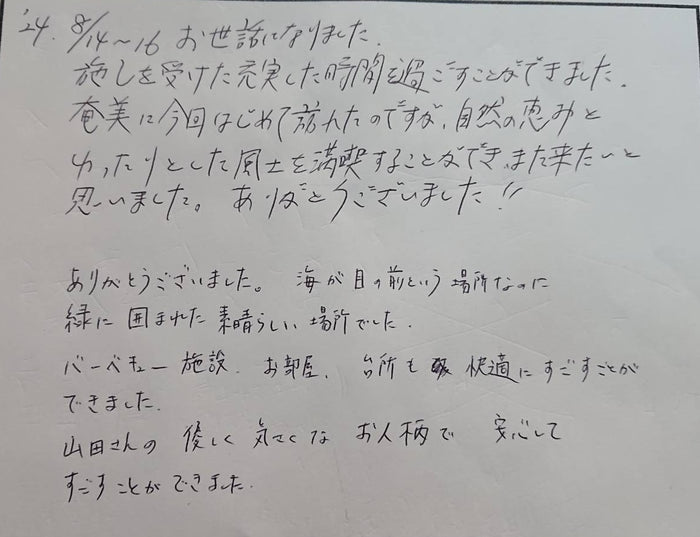 '24. 8/14~16 お世話になりました.
施しを受けた充実した時間を過ごすことができました.
奄美に今回はじめて訪れたのですが、自然の恵みと
ゆったりとした風土を満喫することができ、また来たいと
思いました。ありがとうございました!!
ありがとうございました。海が目の前という場所なのに
緑に囲まれた素晴らしい場所でした.
バーベキュー施設. お部屋. 台所も 快適にすごすことが
できました.
山田さんの優しく気さくなお人柄で 安心して
すごすことができました.